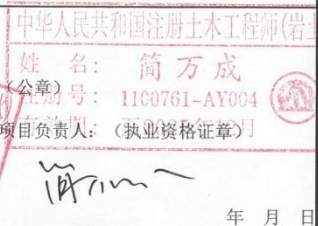 中华人民共和国注册土木工程师(岩土
姓 名: 简万成
(公章)
注册号: 1100761-AY004
项目负责人: (执业资格证章)
年 月 日